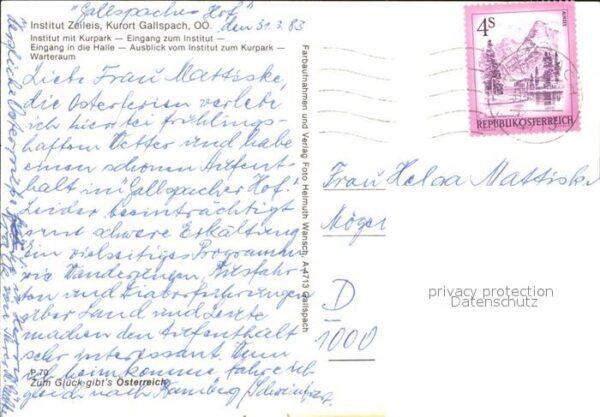 "Gallspacher Hof"
Institut Zeileis, Kurort Gallspach, OÖ.
den 31.3.83
Institut mit Kurpark — Eingang zum Institut —
Eingang in die Halle — Ausblick vom Institut zum Kurpark —
Warteraum
Liebe Frau Mattiske,
die Osterferien verlebe
ich hier bei frühlings-
haftem Wetter und habe
einen schönen Aufent-
halt im Gallspacher Hof.
Leider beeinträchtigt
eine schwere Erkältung
ein vielseitiges Programm
wie Wanderungen, Busfahr-
ten und Diavorführungen
über Land und Leute
machen den Aufenthalt
sehr interessant. Wenn
heimkomme fahre ich
gleich nach Bamberg / Schweinfurt.
P 70
Zum Glück gibt's Österreich
Herzliche Ostergrüße
Farbaufnahmen und Verlag Foto Helmuth Wansch, A-4713 Gallspach
4 S
ALMSEE
REPUBLIK ÖSTERREICH
Frau Helga Mattiske
D
1000
privacy protection
Datenschutz